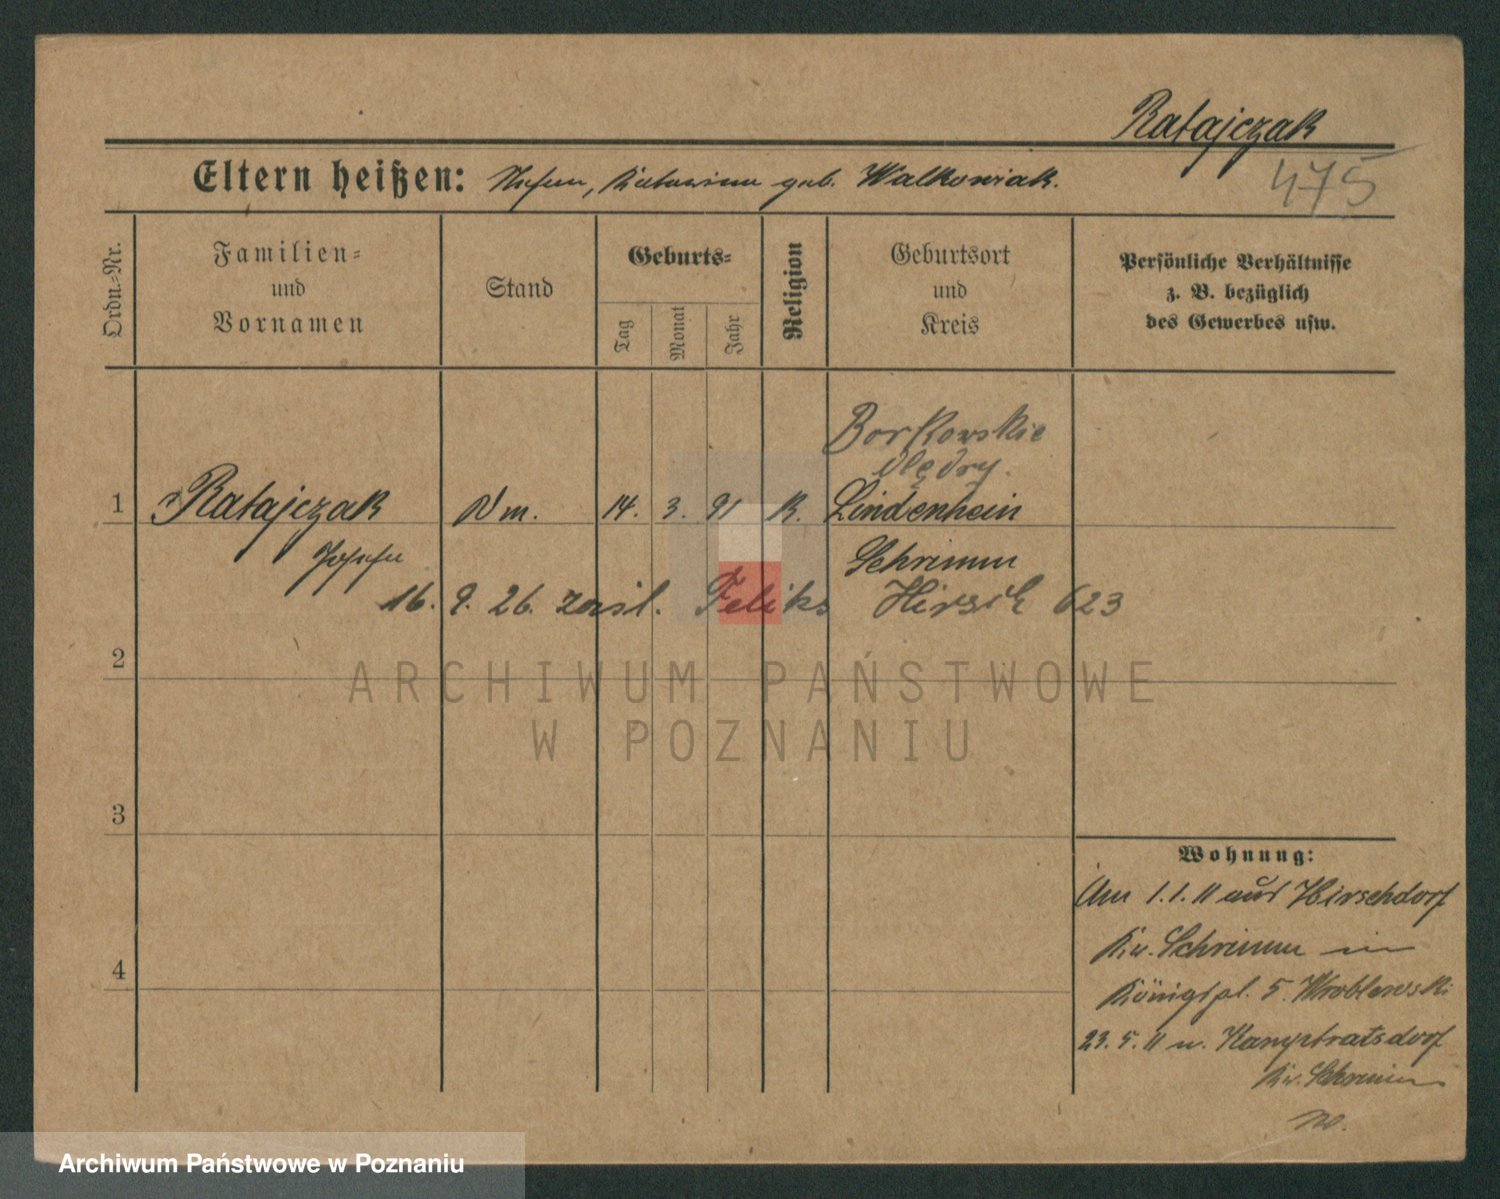 Ratajczak
475
Eltern heißen: geb. Walkowiak.
Ordn.-Nr.
Familien-
und
Vornamen
Stand
Geburts-
Tag
Monat
Jahr
Religion
Geburtsort
und
Kreis
Persönliche Verhältnisse
z. B. bezüglich
des Gewerbes usw.
Borkowskie
olędry.
1 Ratajczak 14. 3. 91 K. Lindenhein
Schrimm
16. 9. 26. zasil. Feliks Hirsch 623
2
ARCHIWUM PAŃSTWOWE
W POZNANIU
3
4
Wohnung:
Am 1.1.11 aus Hirschdorf
Kr. Schrimm in
Königspl. 5. Wroblewski
23. 5. 11 n. Hauptratsdorf
Kr. Schrimm
Archiwum Państwowe w Poznaniu